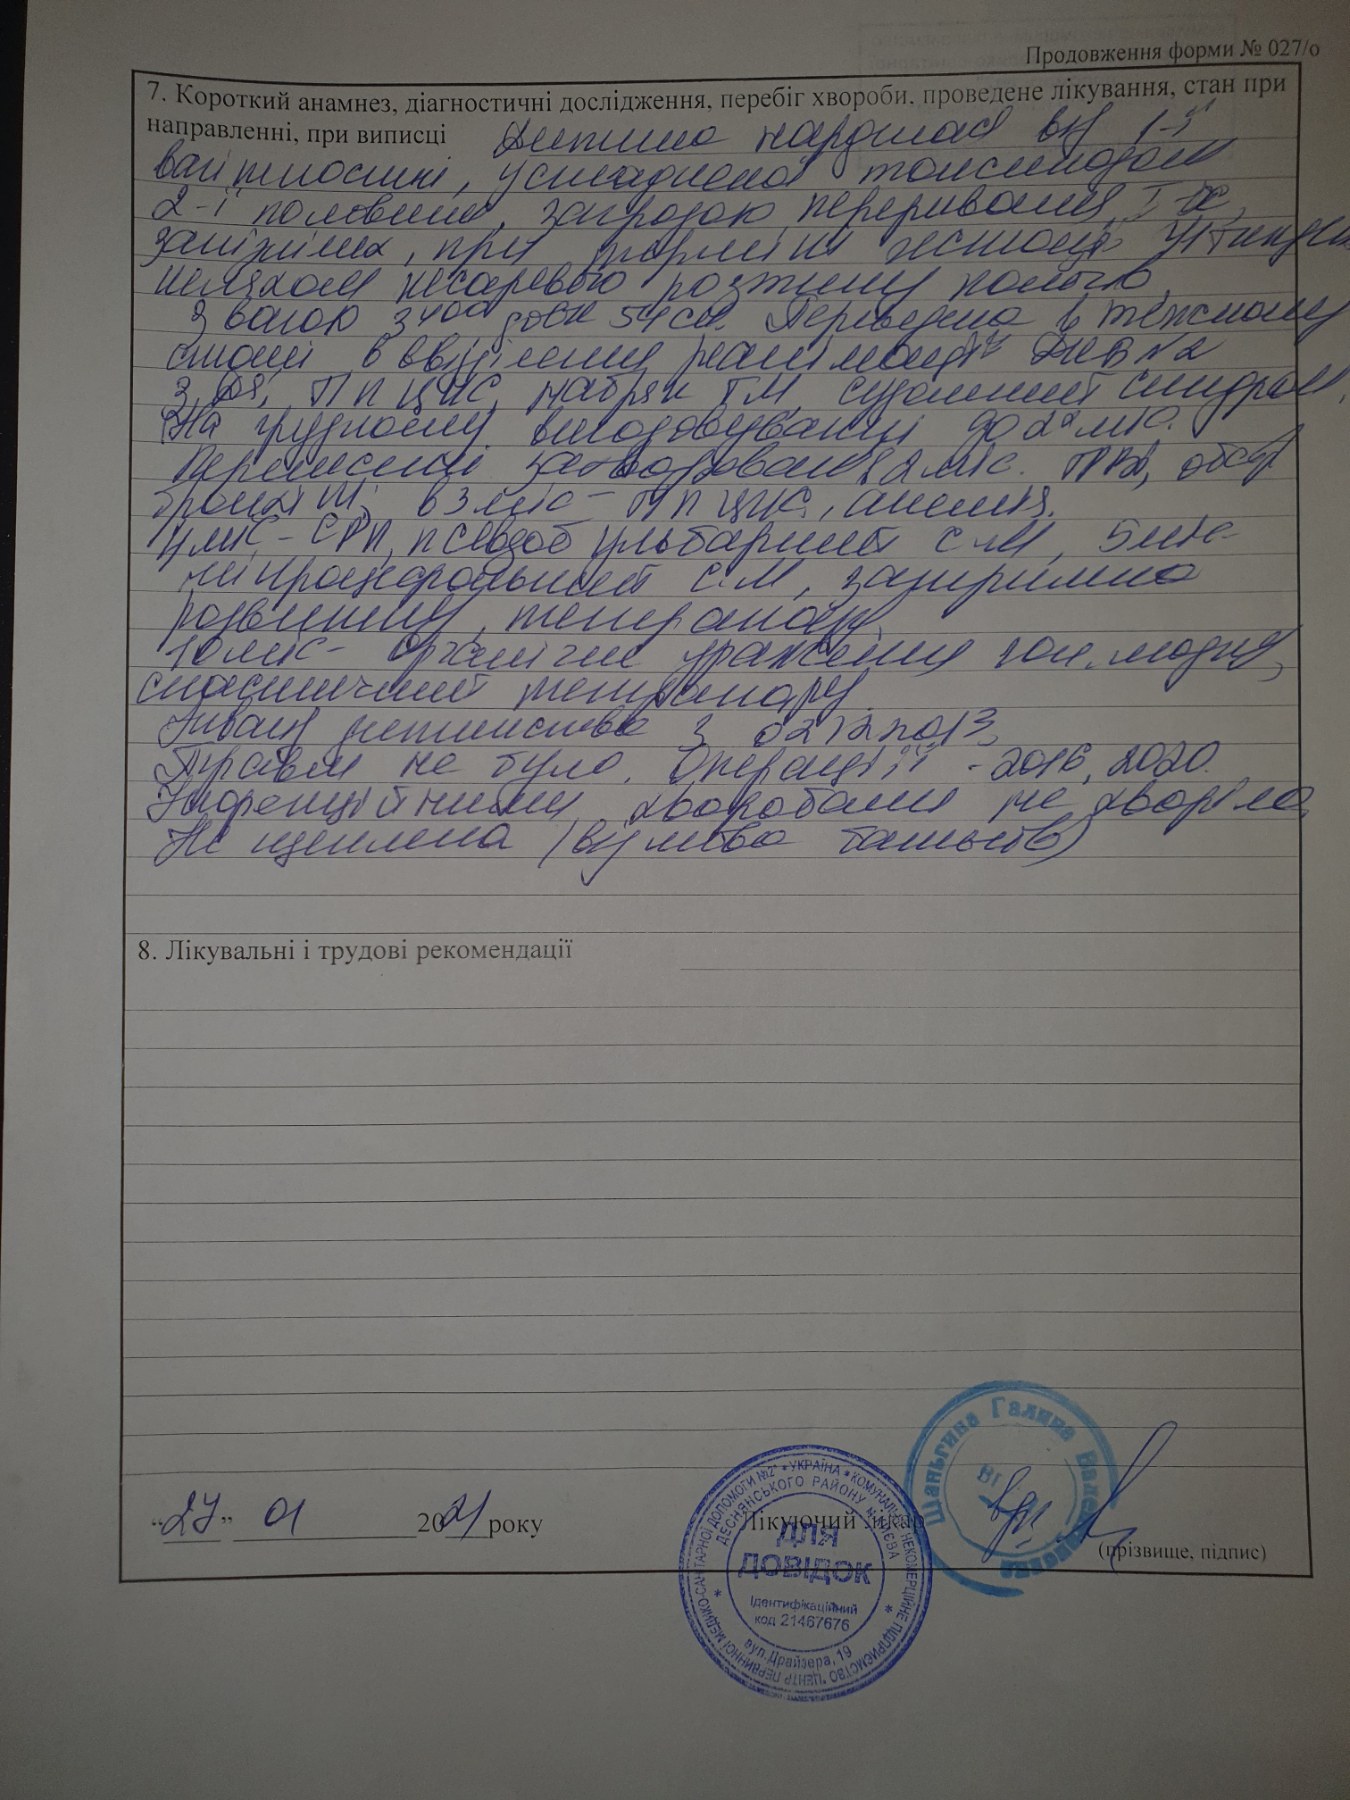 Продовження форми № 027/о
7. Короткий анамнез, діагностичні дослідження, перебіг хвороби, проведене лікування, стан при
направленні, при виписці Дитина народилася від 1-ї
вагітності, ускладненої токсикозом
2-ї половини, загрозою переривання,
при терміні гестації
шляхом кесаревого розтину
з вагою 3400 довж 54 см. Переведена в тяжкому
стані в відділення реанімації №2
з ПП ЦНС, набряк ГМ, судомний синдром,
На грудному вигодовуванні до 2х міс.
Перенесені захворювання 2 міс. обстр
бронхіт; в 3 міс - ПП ЦНС, анемія.
4 міс - СРП, псевдобульбарний с-м, 5 міс -
с-м, затримка
розвитку, тетрапарез
10 міс - Органічне ураження гол. мозку,
спастичний тетрапарез
Інвалід дитинства з 02.12.2013
Травм не було. Операції - 2016, 2020.
Інфекційними хворобами не хворіла
Не щеплена (відмова батьків)
8. Лікувальні і трудові рекомендації
"27" 01 2021 року
Лікуючий лікар
(прізвище, підпис)
УКРАЇНА • КОМУНАЛЬНЕ НЕКОМЕРЦІЙНЕ ПІДПРИЄМСТВО "ЦЕНТР ПЕРВИННОЇ МЕДИКО-САНІТАРНОЇ ДОПОМОГИ №2"
ДЕСНЯНСЬКОГО РАЙОНУ М. КИЄВА
ДЛЯ
ДОВІДОК
Ідентифікаційний
код 21467676
вул. Драйзера, 19
Шаньгіна Галина